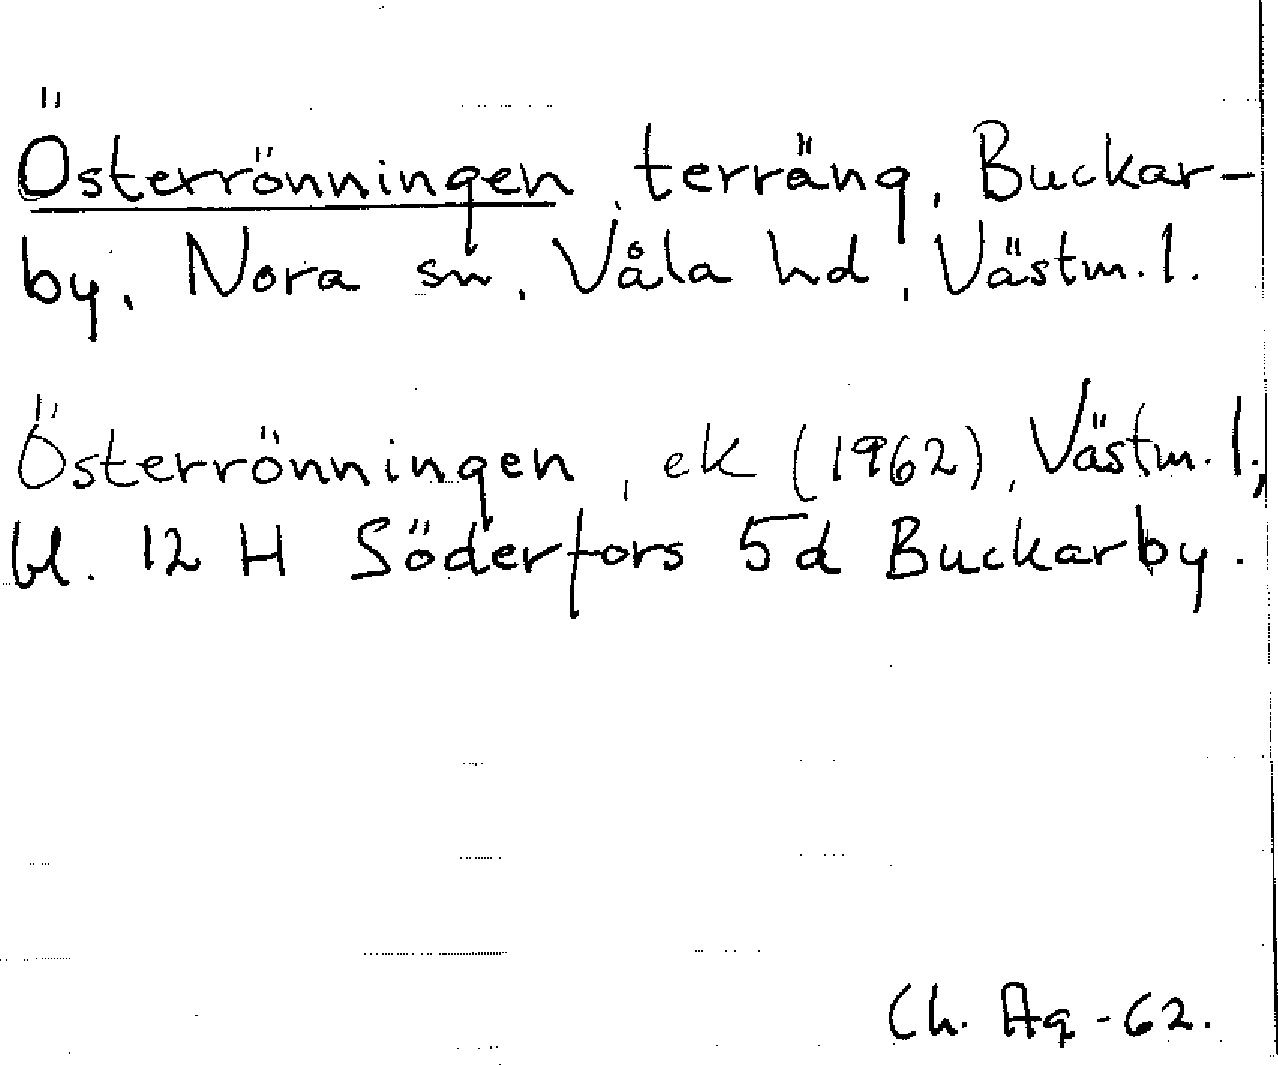 Österrönningen, terräng, Buckar-
by, Nora sn, Våla hd, Västm. l.
Österrönningen, ek (1962), Västm. l;
bl. 12 H Söderfors 5d Buckarby.
Ch. Ag -62.